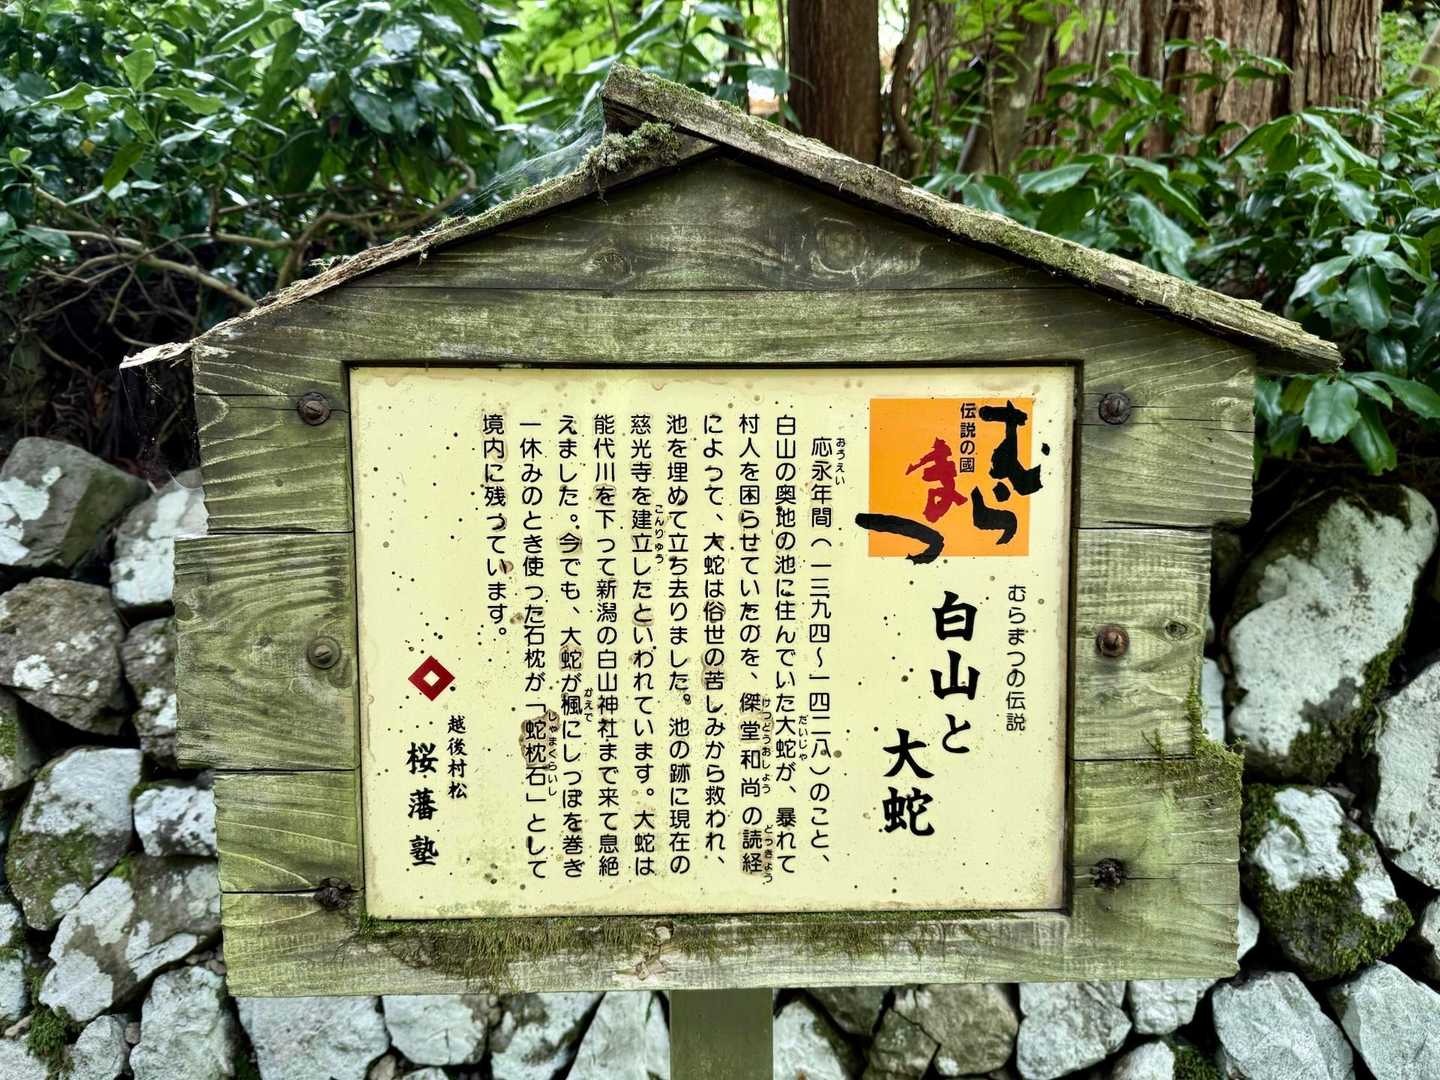 伝説の國
むらまつ
むらまつの伝説
白山と
大蛇
応永年間(一三九四~一四二八)のこと、
おうえい
白山の奥地の池に住んでいた大蛇が、暴れて
だいじゃ
村人を困らせていたのを、傑堂和尚の読経
けつどうおしょう
どっきょう
によって、大蛇は俗世の苦しみから救われ、
池を埋めて立ち去りました。池の跡に現在の
慈光寺を建立したといわれています。大蛇は
こんりゅう
能代川を下って新潟の白山神社まで来て息絶
えました。今でも、大蛇が楓にしっぽを巻き
かえで
一休みのとき使った石枕が「蛇枕石」として
じゃまくらいし
境内に残っています。
越後村松
桜藩塾